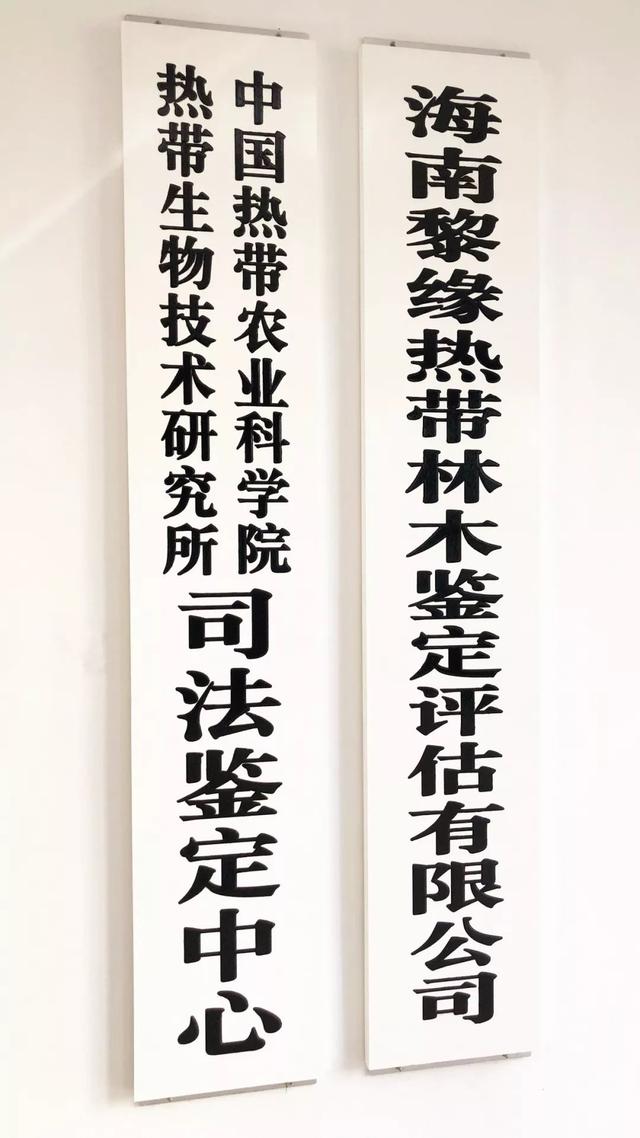 海南黎缘热带林木鉴定评估有限公司
中国热带农业科学院
热带生物技术研究所
司法鉴定中心